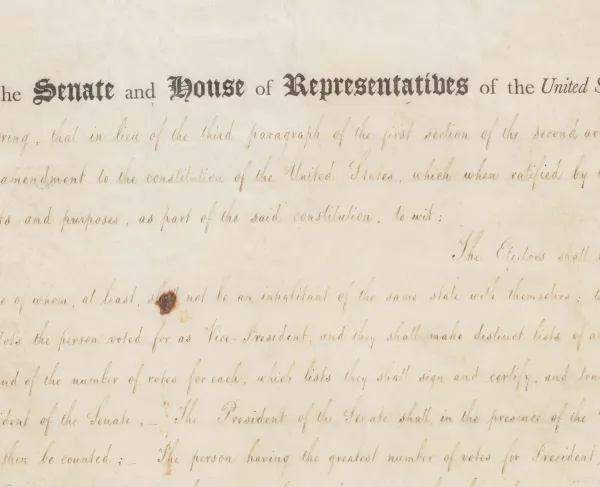 he Senate and House of Representatives of the United S
ring, that in lieu of the third paragraph of the first section of the second
amendment to the constitution of the United States, which when ratified by
ts and purposes, as part of the said constitution, to wit:
The Electors shall
of whom, at least, shall not be an inhabitant of the same state with themselves;
the person voted for as Vice-President, and they shall make distinct lists of
nd of the number of votes for each, which lists they shall sign and certify, and
ident of the Senate;_ The President of the Senate shall, in the presence of the
then be counted;_ The person having the greatest number of votes for President,